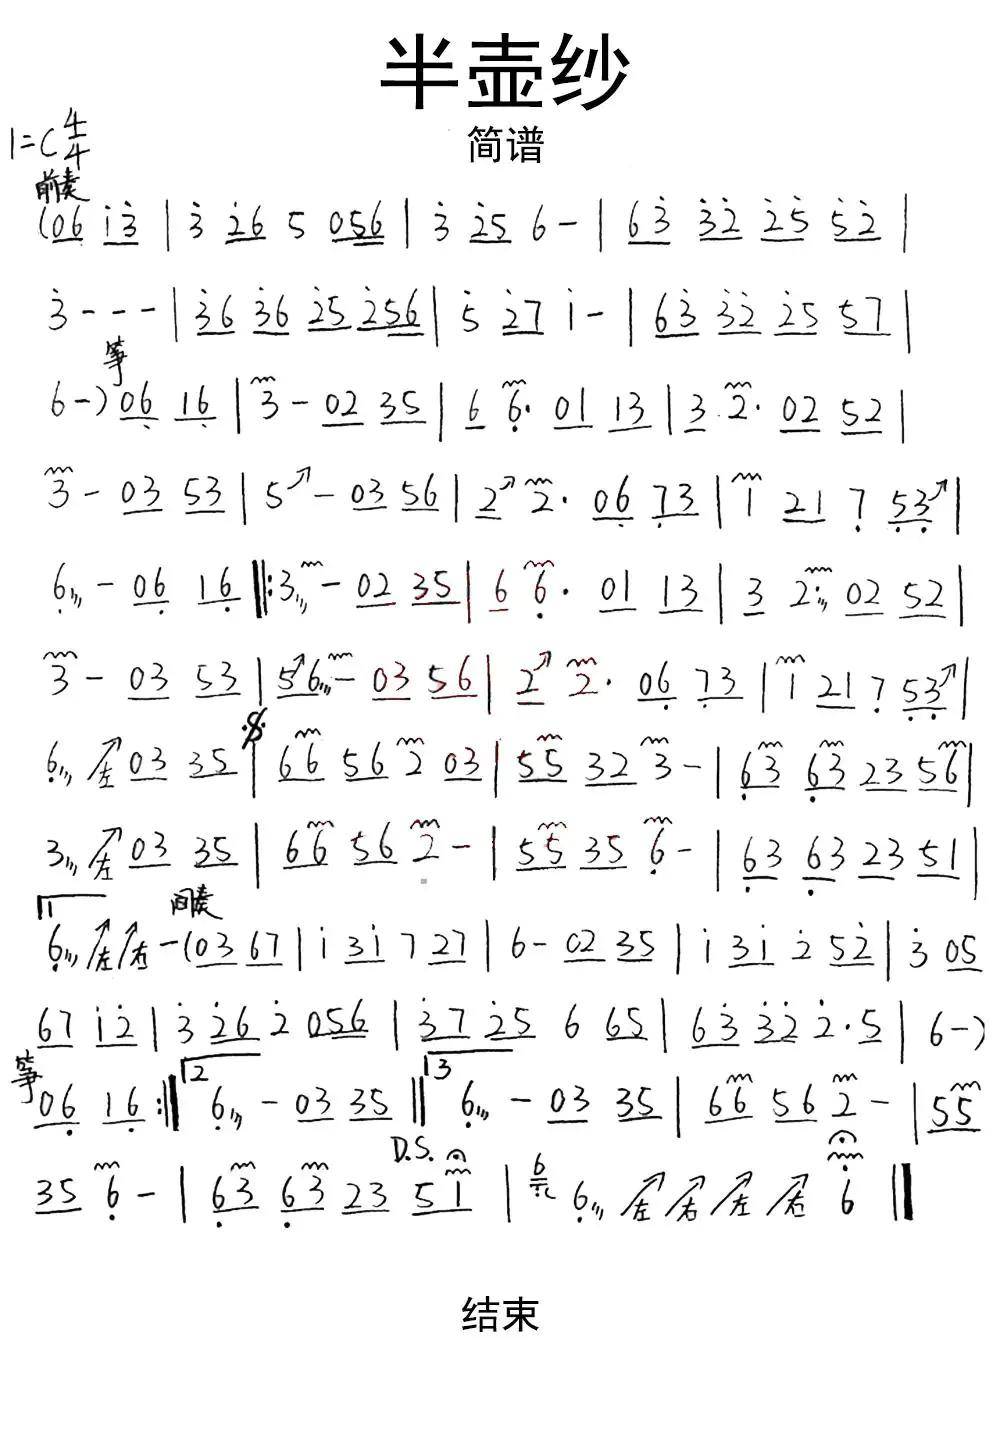 半壶纱
简谱
1=C 4/4
前奏
(06 i3̇ | 3̇ 2̇6 5 056 | 3̇ 2̇5 6 - | 63̇ 3̇2̇ 2̇5̇ 5̇2̇ |
3̇ - - - | 3̇6 3̇6 2̇5 2̇56 | 5̇ 2̇7 i - | 63̇ 3̇2̇ 2̇5 57 |
筝
6 -) 06̣ 16̣ | 3 - 02 35 | 6 6̣· 01 13 | 3 2· 02 52 |
3 - 03 53 | 5↗ - 03 56 | 2↗ 2· 06̣ 7̣3 | 1 21 7̣ 5̣3̣↗ |
6̣ - 06̣ 16̣ ‖: 3 - 02 35 | 6 6̣· 01 13 | 3 2· 02 52 |
3 - 03 53 | 5↗6 - 03 56 | 2↗ 2· 06̣ 7̣3 | 1 21 7̣ 5̣3̣↗ |
6̣ ↗左 03 35 | 𝄋 66 56 2 03 | 55 32 3 - | 6̣3 6̣3 23 56 |
3 ↗左 03 35 | 66 56 2 - | 55 35 6̣ - | 6̣3 6̣3 23 51 |
1 间奏
6̣ ↗左 ↗右 - (03 67 | i 3i 7 27 | 6 - 02 35 | i 3i 2̇ 52̇ | 3̇ 05
67 i2̇ | 3̇ 2̇6 2̇ 056 | 3̇7 2̇5 6 65 | 63̇ 3̇2̇ 2̇·5 | 6 -)
筝 06̣ 16̣ :‖ 2 6̣ - 03 35 ‖ 3 6̣ - 03 35 | 66 56 2 - | 55
D.S.
35 6̣ - | 6̣3 6̣3 23 5 1 | 6 6̣ ↗左 ↗右 ↗左 ↗右 6 ‖
结束